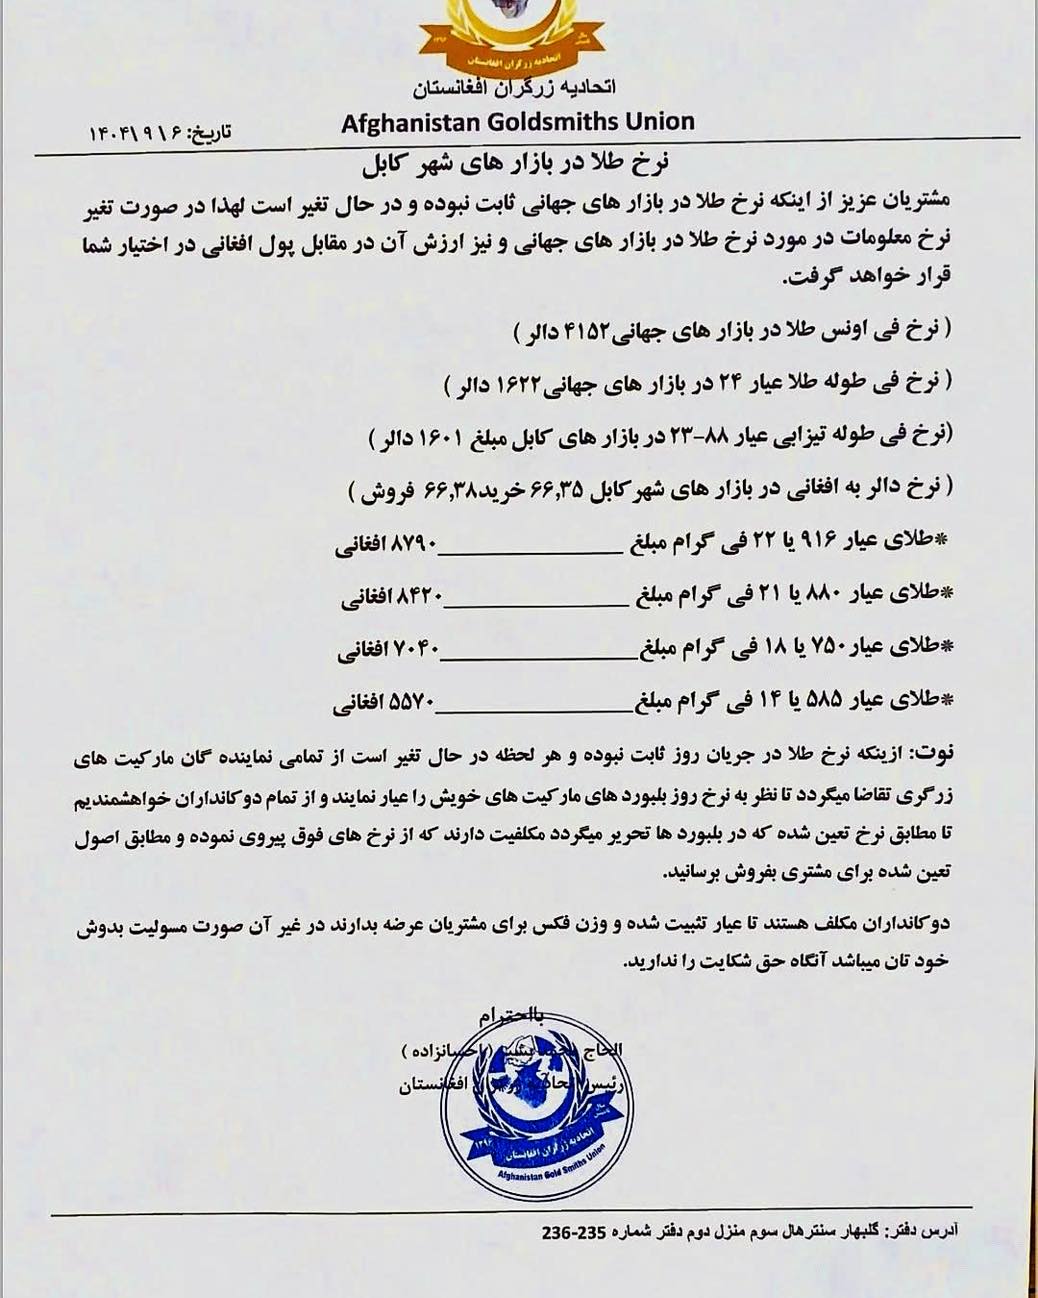 اتحادیه زرگران افغانستان
اتحادیه زرگران افغانستان
Afghanistan Goldsmiths Union
تاریخ: ۶ \ ۹ \ ۱۴۰۴
نرخ طلا در بازار های شهر کابل
مشتریان عزیز از اینکه نرخ طلا در بازار های جهانی ثابت نبوده و در حال تغیر است لهذا در صورت تغیر
نرخ معلومات در مورد نرخ طلا در بازار های جهانی و نیز ارزش آن در مقابل پول افغانی در اختیار شما
قرار خواهد گرفت.
( نرخ فی اونس طلا در بازار های جهانی۴۱۵۲ دالر )
( نرخ فی طوله طلا عیار ۲۴ در بازار های جهانی۱۶۲۲ دالر )
(نرخ فی طوله تیزابی عیار ۸۸-۲۳ در بازار های کابل مبلغ ۱۶۰۱ دالر)
( نرخ دالر به افغانی در بازار های شهرکابل ۶۶,۳۵ خرید۶۶,۳۸ فروش )
*طلای عیار ۹۱۶ یا ۲۲ فی گرام مبلغ ________________۸۷۹۰ افغانی
*طلای عیار ۸۸۰ یا ۲۱ فی گرام مبلغ ________________۸۴۲۰ افغانی
*طلای عیار ۷۵۰ یا ۱۸ فی گرام مبلغ________________۷۰۴۰ افغانی
*طلای عیار ۵۸۵ یا ۱۴ فی گرام مبلغ________________۵۵۷۰ افغانی
نوت: ازینکه نرخ طلا در جریان روز ثابت نبوده و هر لحظه در حال تغیر است از تمامی نماینده گان مارکیت های
زرگری تقاضا میگردد تا نظر به نرخ روز بلبورد های مارکیت های خویش را عیار نمایند و از تمام دوکانداران خواهشمندیم
تا مطابق نرخ تعین شده که در بلبورد ها تحریر میگردد مکلفیت دارند که از نرخ های فوق پیروی نموده و مطابق اصول
تعین شده برای مشتری بفروش برسانید.
دوکانداران مکلف هستند تا عیار تثبیت شده و وزن فکس برای مشتریان عرضه بدارند در غیر آن صورت مسولیت بدوش
خود تان میباشد آنگاه حق شکایت را ندارید.
بااحترام
الحاج محمد (احسانزاده )
رئیس اتحادیه زرگران افغانستان
اتحادیه زرگران افغانستان
Afghanistan Gold Smiths Union
آدرس دفتر: گلبهار سنترهال سوم منزل دوم دفتر شماره 235-236